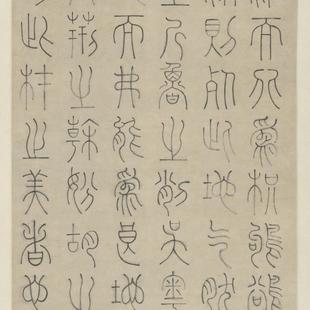 而北為枳鸜鵒
則死此地氣然
之斤魯之削吳粵
而弗能為良地
荊之幹妢胡之
此材之美者也